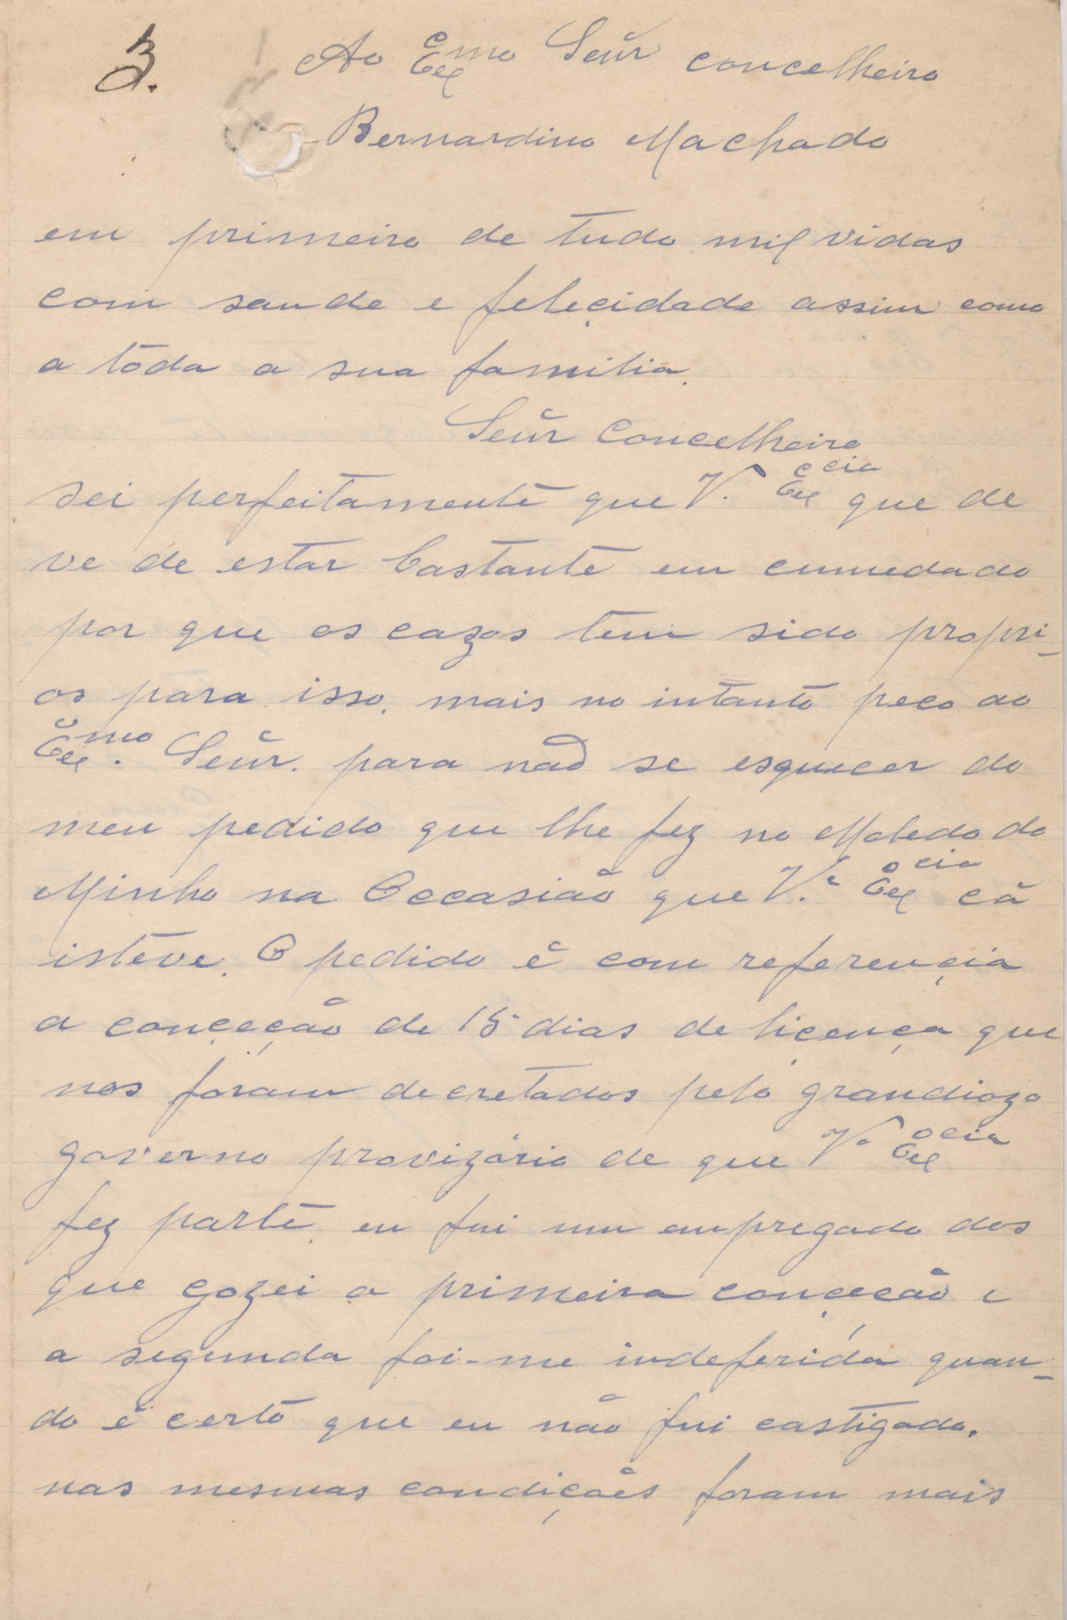 3.
Ao Exmo Senr concelheiro
Bernardino Machado
em primeiro de tudo mil vidas
com saude e felecidade assim como
a tôda a sua familia.
Senr Concelheiro
sei perfeitamente que V. Excia que de
ve de estar bastante em cumedado
por que os cazos tem sido propri-
os para isso. mais no intanto peco ao
Exmo. Senr. para não se esquecer do
meu pedido que lhe fez no Moledo do
Minho na Occasião que V.ª Excia cá
istêve. O pedido é com referençia
a conçeção de 15 dias de liçença que
nos foram decretados pelo grandiozo
governo provizório de que Vª Excia
fez parte. eu fui um empregado dos
que gozei a primeira conçecão e
a segunda foi-me indeferida quan-
do é certo que eu não fui castigado.
nas mesmas condiçoês foram mais